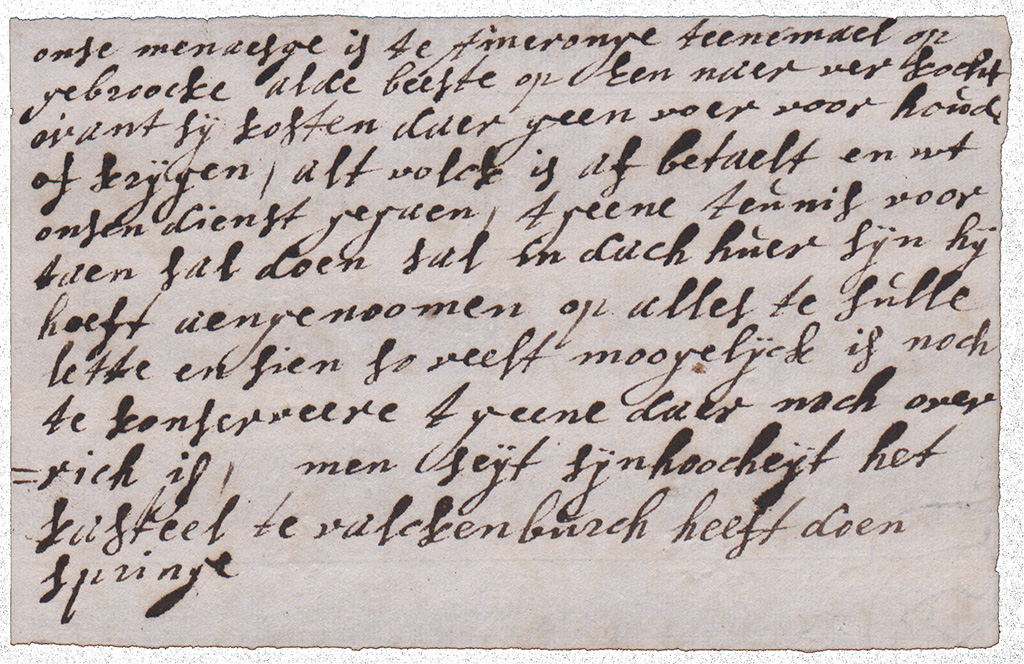 onse menaesge is te tineronge teenemael op
gebroocke alde beeste op een naer ver kocht
want sy kosten daer geen voer voor houd
of krijgen / alt volck is af betaelt en wt
onsen dienst gegaen, t geene teunis voor
taen sal doen sal in dach huer sijn hij
heeft aengenoomen op alles te sulle
lette en sien so veelt moogelijck is noch
te konserveere t geene daer noch over
=rich is / men seijt sijn hoocheijt het
kasteel te valckenburch heeft doen
springe